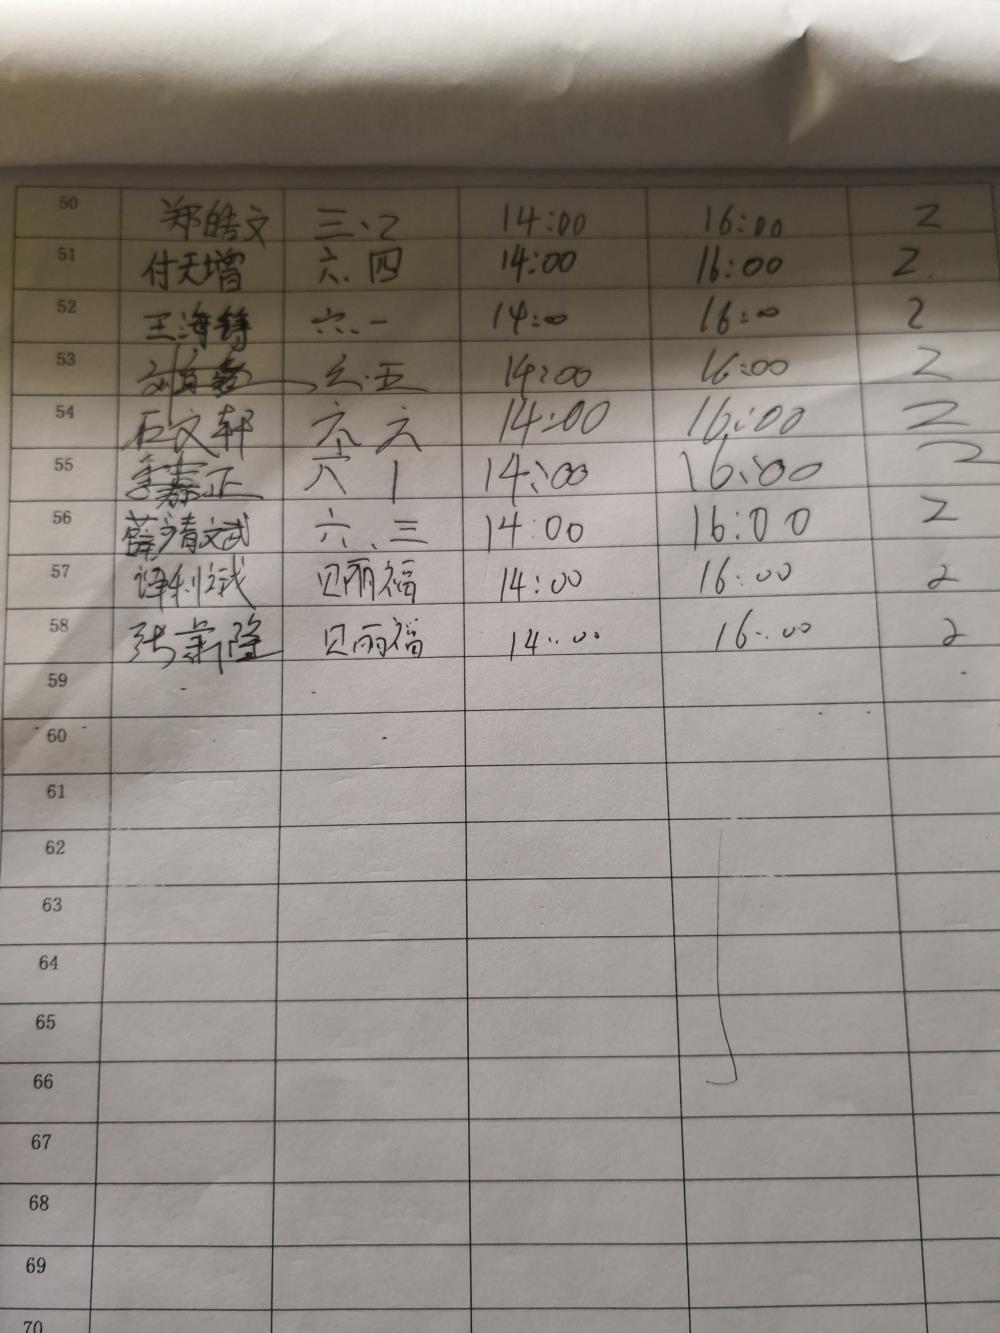 50 郑皓文 三.2 14:00 16:00 2
51 付天增 六.四 14:00 16:00 2.
52 王海铸 六.一 14:00 16:00 2
53 五 14:00 16:00 2
54 石文轩 六.六 14:00 16:00 2
55 李嘉正 六 1 14:00 16:00 2
56 薛清文武 六、三 14:00 16:00 2
57 译利斌 贝丽福 14:00 16:00 2
58 张萧隆 贝丽福 14:00 16:00 2
59
60
61
62
63
64
65
66
67
68
69
70